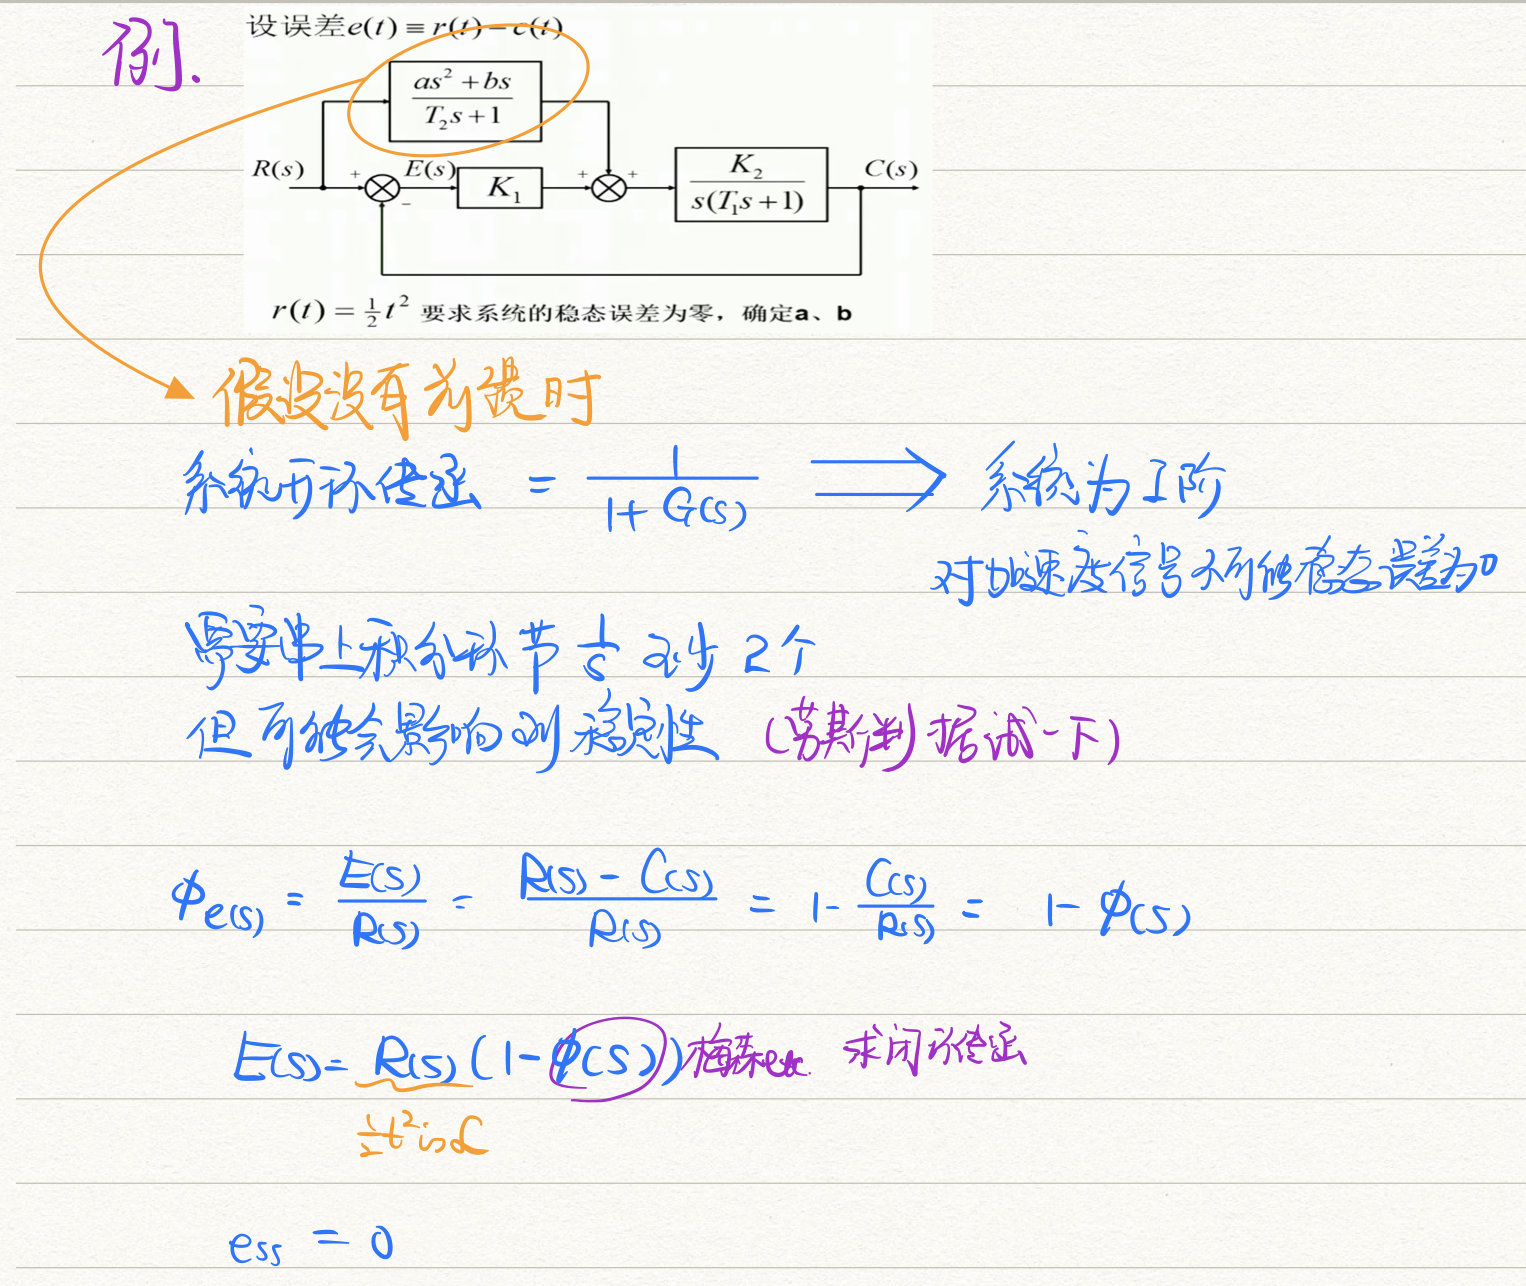 例.
设误差e(t) ≡ r(t) − c(t)
as² + bs
T₂s + 1
R(s) + − E(s) K₁ + + K₂ C(s)
s(T₁s + 1)
r(t) = ½t² 要求系统的稳态误差为零，确定a、b
假设没有前馈时
系统开环传函 = 1/(1+G(s)) ⟹ 系统为I阶
对加速度信号不可能稳态误差为0
需要串上积分环节 1/s 至少 2个
但可能会影响到稳定性 (劳斯判据试一下)
Φe(s) = E(s)/R(s) = (R(s) − C(s))/R(s) = 1 − C(s)/R(s) = 1 − Φ(s)
E(s) = R(s)(1 − Φ(s)) 梅森etc. 求闭环传函
½t² in ℒ
ess = 0